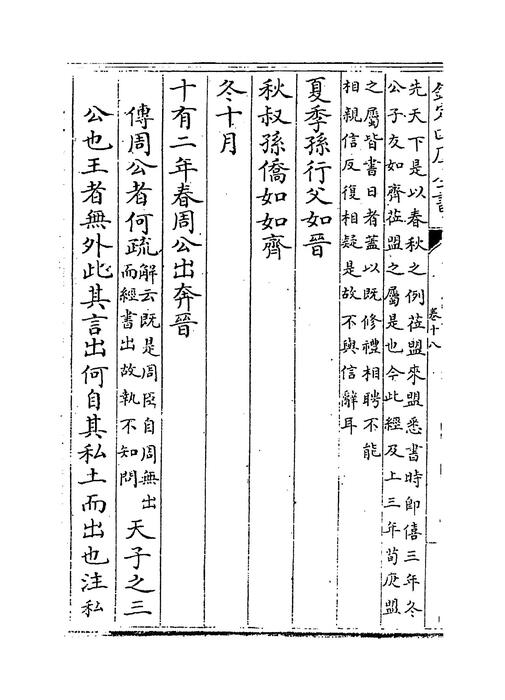 欽定四庫全書
卷十八
先天下是以春秋之例莅盟來盟悉書時即僖三年冬
公子友如齊莅盟之屬是也今此經及上三年荀庚盟
之屬皆書日者蓋以既修禮相聘不能
相親信反復相疑是故不與信辭耳
夏季孫行父如晉
秋叔孫僑如如齊
冬十月
十有二年春周公出奔晉
傳周公者何疏解云既是周臣自周無出
而經書出故執不知問天子之三
公也王者無外此其言出何自其私土而出也注私